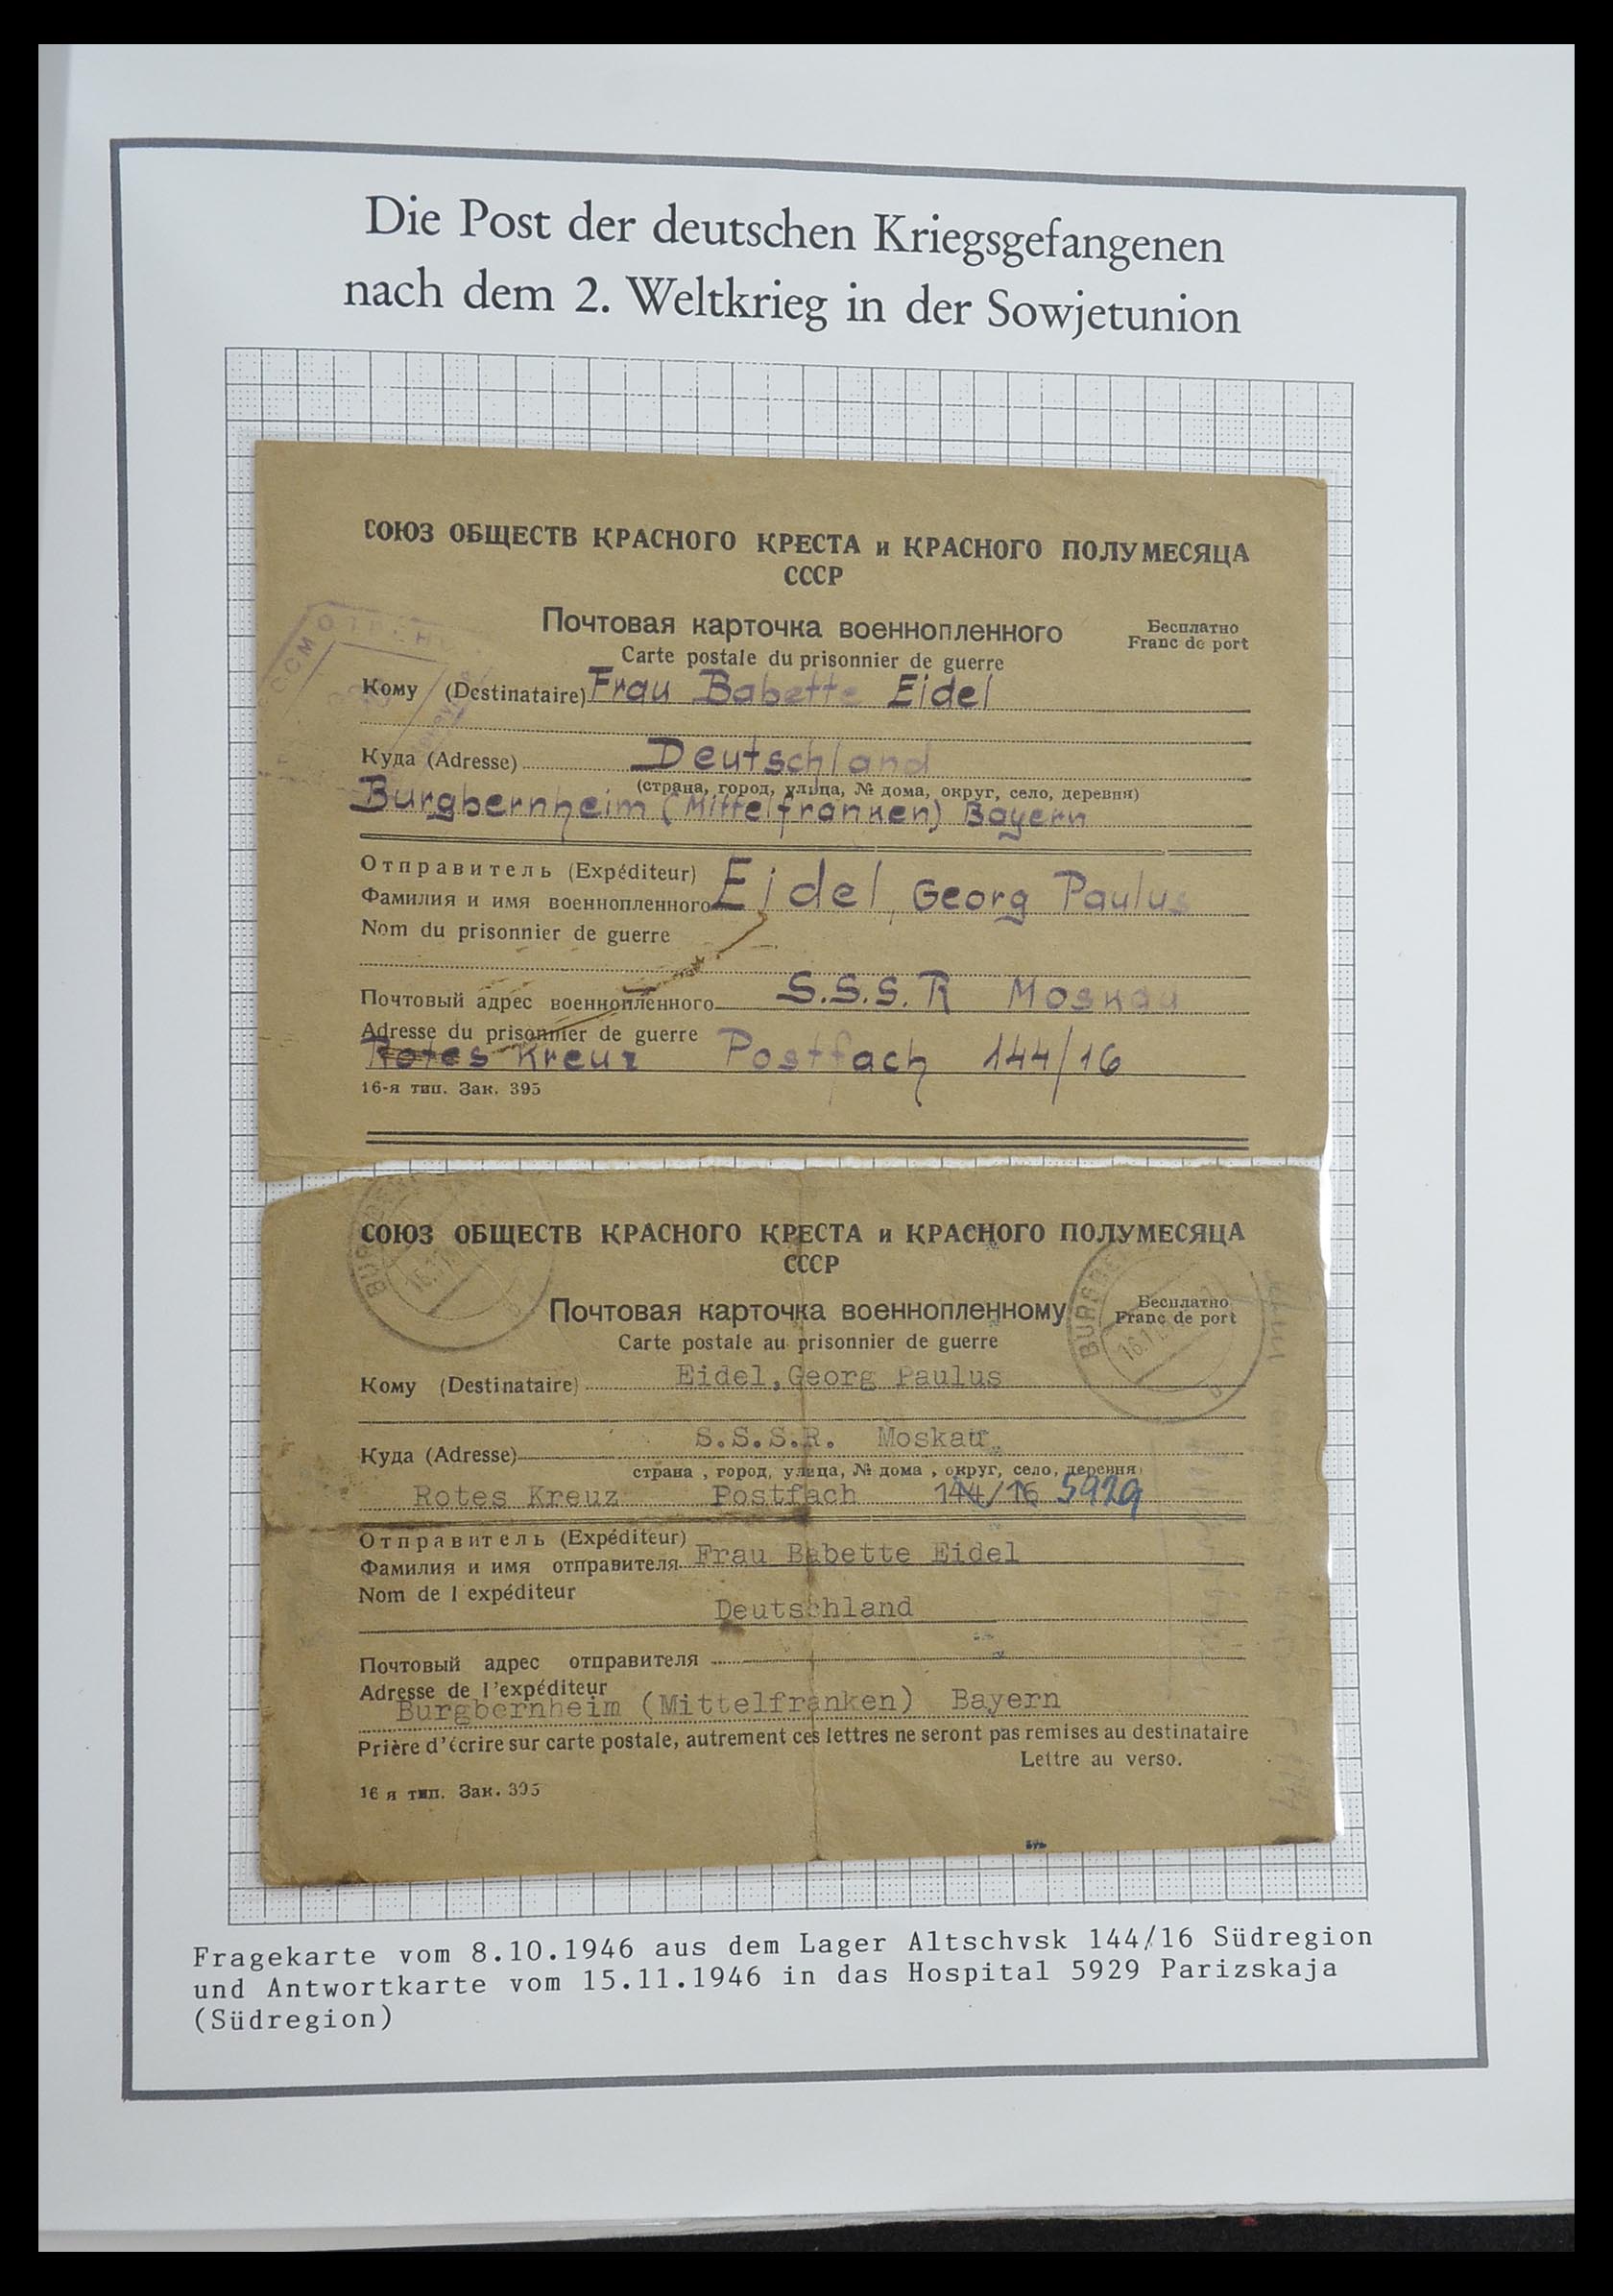 Die Post der deutschen Kriegsgefangenen
nach dem 2. Weltkrieg in der Sowjetunion
СОЮЗ ОБЩЕСТВ КРАСНОГО КРЕСТА и КРАСНОГО ПОЛУМЕСЯЦА
СССР
Почтовая карточка военнопленного
Бесплатно
Franc de port
Carte postale du prisonnier de guerre
Кому (Destinataire) Frau Babette Eidel
Куда (Adresse) Deutschland
(страна, город, улица, № дома, округ, село, деревня)
Burgbernheim (Mittelfranken) Bayern
Отправитель (Expéditeur)
Фамилия и имя военнопленного Eidel, Georg Paulus
Nom du prisonnier de guerre
Почтовый адрес военнопленного S.S.S.R Moskau
Adresse du prisonnier de guerre
Rotes Kreuz Postfach 144/16
16-я тип. Зак. 395
СОЮЗ ОБЩЕСТВ КРАСНОГО КРЕСТА и КРАСНОГО ПОЛУМЕСЯЦА
СССР
Почтовая карточка военнопленному
Бесплатно
Franc de port
Carte postale au prisonnier de guerre
Кому (Destinataire) Eidel, Georg Paulus
Куда (Adresse) S.S.S.R. Moskau
страна, город, улица, № дома, округ, село, деревня
Rotes Kreuz Postfach 144/16 5929
Отправитель (Expéditeur)
Фамилия и имя отправителя Frau Babette Eidel
Nom de l expéditeur
Deutschland
Почтовый адрес отправителя
Adresse de l'expéditeur
Burgbernheim (Mittelfranken) Bayern
Prière d'écrire sur carte postale, autrement ces lettres ne seront pas remises au destinataire
Lettre au verso.
16 я тип. Зак. 395
Fragekarte vom 8.10.1946 aus dem Lager Altschvsk 144/16 Südregion
und Antwortkarte vom 15.11.1946 in das Hospital 5929 Parizskaja
(Südregion)